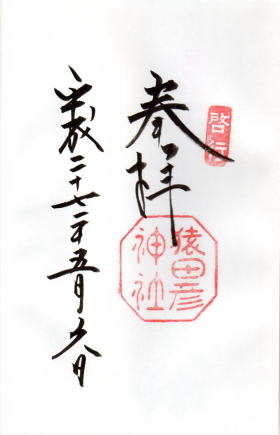 啓行
奉拝
猿田彦
神社
平成二十七年五月六日